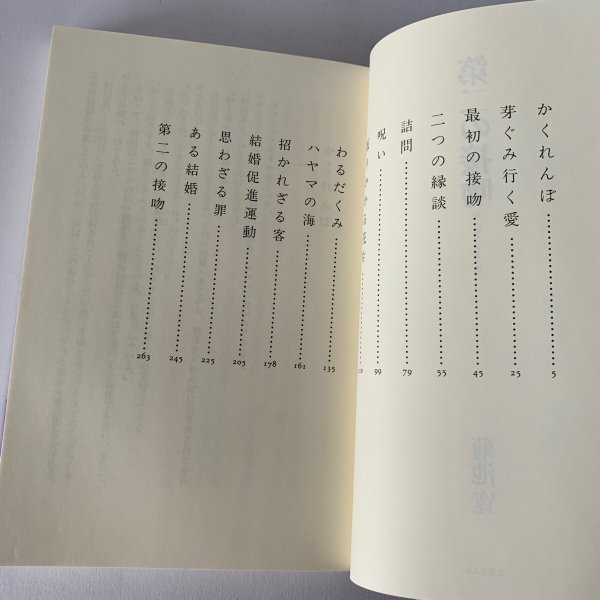 かくれんぼ 5
芽ぐみ行く愛 25
最初の接吻 45
二つの縁談 55
詰問 79
呪い 99
わるだくみ 135
ハヤマの海 161
招かれざる客 178
結婚促進運動 205
思わざる罪 225
ある結婚 245
第二の接吻 263
菊池寛